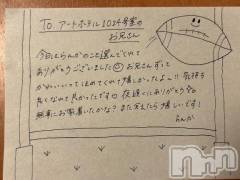 To. アートホテル1024号室の
お兄さん
今日はらんかのこと選んでくれて
ありがとうございました お兄さんずって
かわいいって沢めてくれて嬉しかったよ〜!! 気持ち
良くなれて良かったです 夜遅くにありがとう
無事にお家着いたかな? また会えたら嬉しいです!
らんか